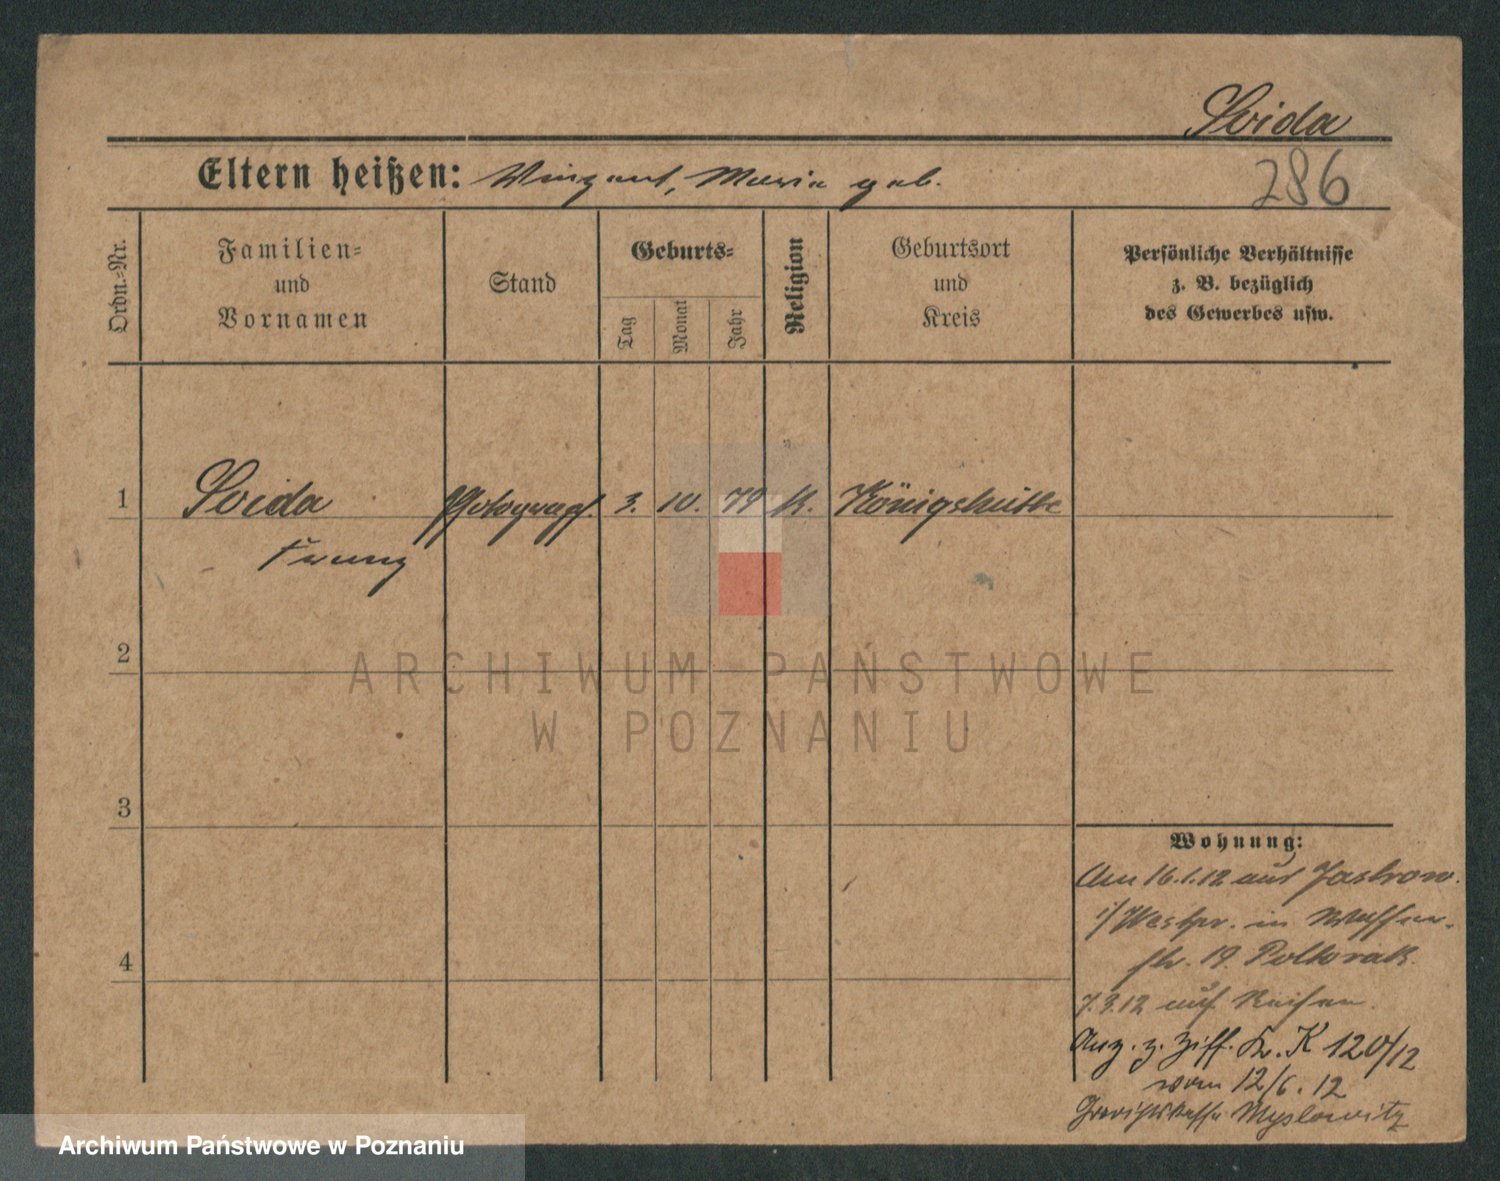 Svida
Eltern heißen: Vinzent, Maria geb.
286
Ordn.-Nr.
Familien-
und
Vornamen
Stand
Geburts-
Tag
Monat
Jahr
Religion
Geburtsort
und
Kreis
Persönliche Verhältnisse
z. B. bezüglich
des Gewerbes usw.
1 Svida Photograph. 3. 10. 79 k. Königshütte
Franz
2
3
4
Wohnung:
Am 16.1.12 aus Jastrow.
i/Westpr. in
str. 19. Poltorak.
7.3.12 auf Reisen.
Anz. z. Ziff. K 120/12
vom 12/6.12
Gerichtskasse Myslowitz
ARCHIWUM PAŃSTWOWE
W POZNANIU
Archiwum Państwowe w Poznaniu